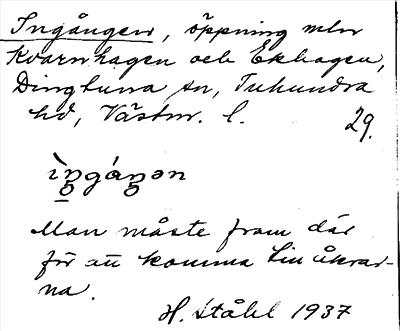 Ingången, öppning mln
Kvarnhagen och Ekhagen,
Dingtuna sn, Tuhundra
hd, Västm. l. 29.
ìŋgáŋən
Man måste fram där
för att komma till åkrar-
na.
H. Ståhl 1937